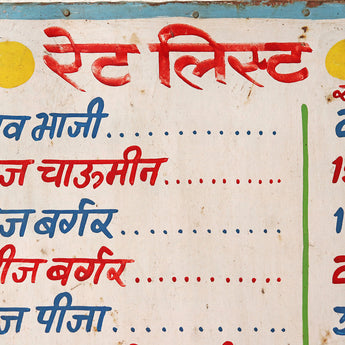 रेट लिस्ट
व भाजी
ज चाऊमीन
ज बर्गर
ीज बर्गर
ज पीजा